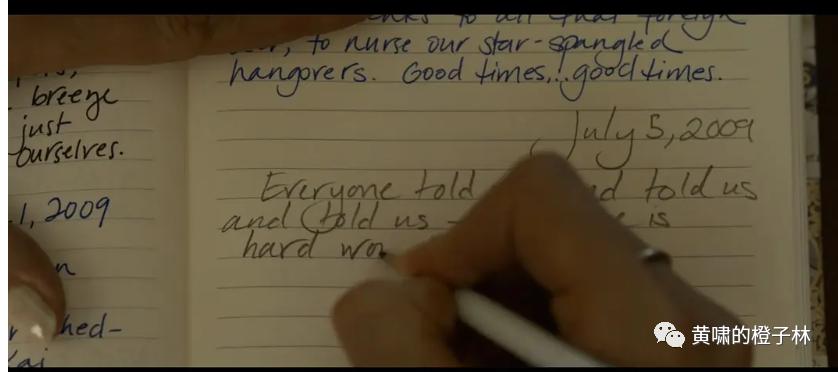 breeze
just
ourselves.
1, 2009
hed-
to all that foreign
to nurse our star-spangled
hangovers. Good times... good times.
July 5, 2009
Everyone told told us
and told us - is
hard wo
黄啸的橙子林